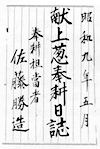 昭和九年五月
献上葱奉耕日誌
奉耕担當者
佐藤勝造